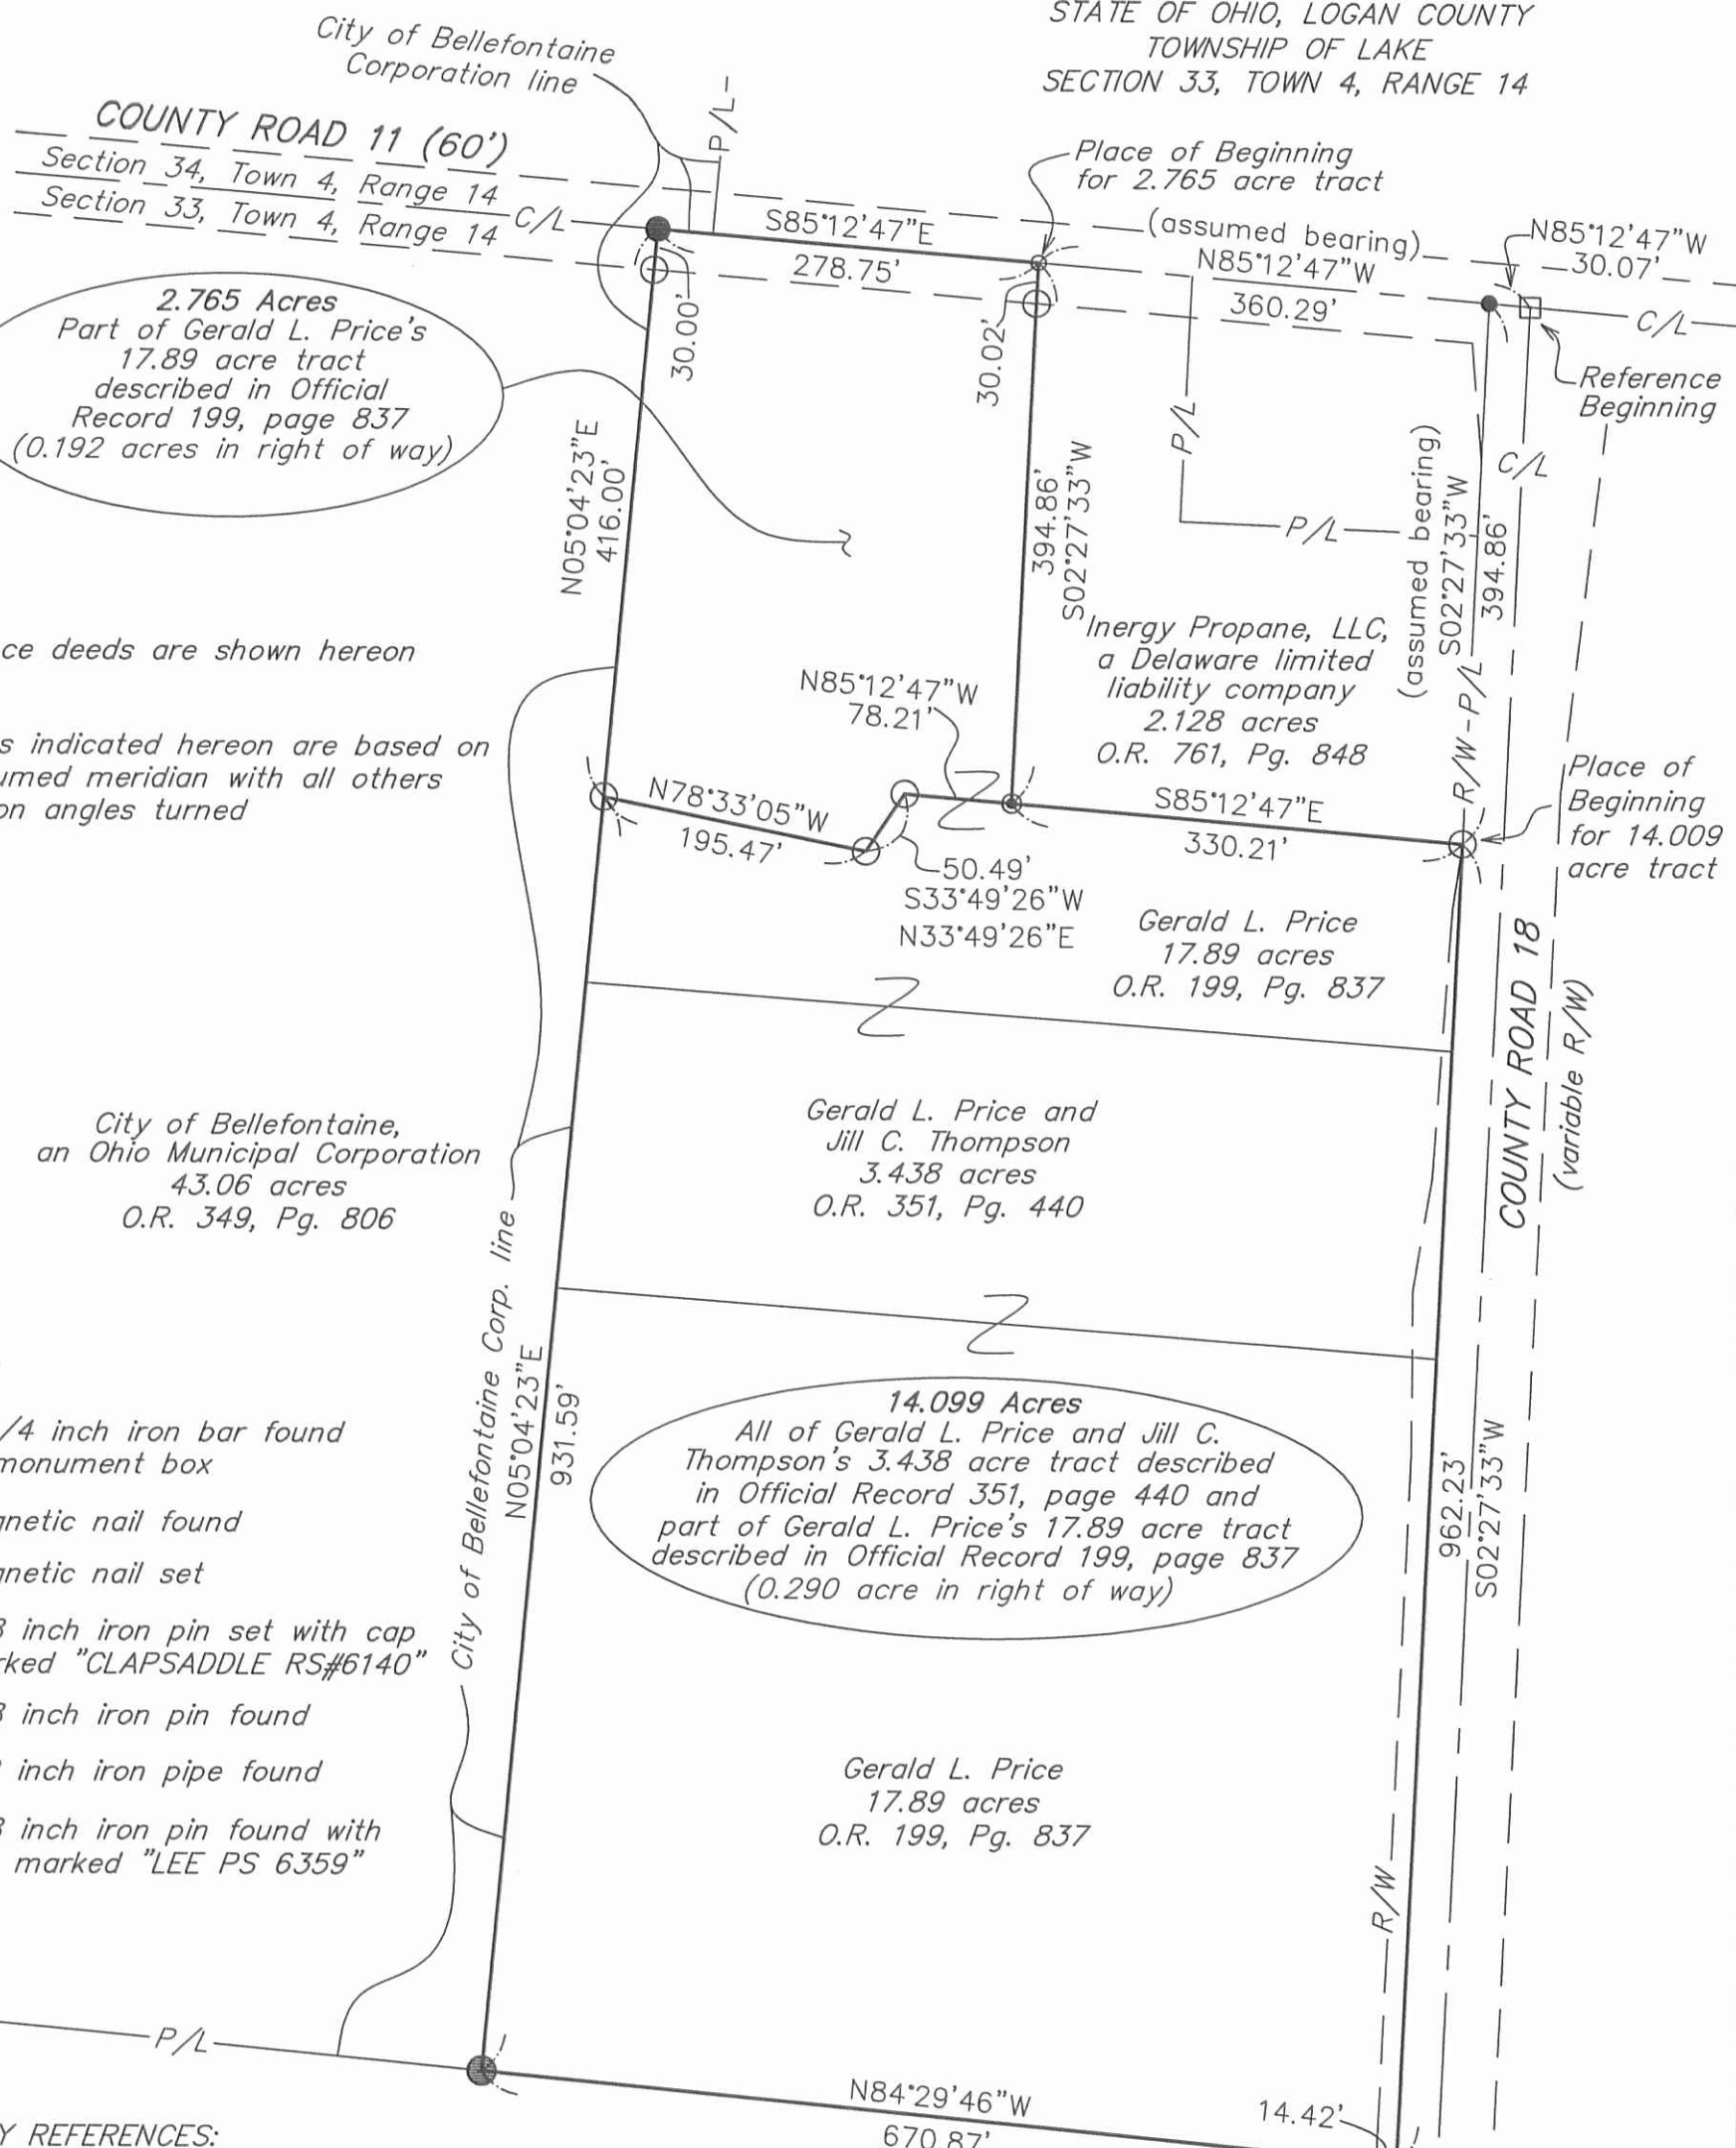 STATE OF OHIO, LOGAN COUNTY
TOWNSHIP OF LAKE
SECTION 33, TOWN 4, RANGE 14
City of Bellefontaine
Corporation line
P/L
COUNTY ROAD 11 (60')
Section 34, Town 4, Range 14
Section 33, Town 4, Range 14
C/L
Place of Beginning
for 2.765 acre tract
S85°12'47"E
278.75'
(assumed bearing)
N85°12'47"W
360.29'
N85°12'47"W
30.07'
C/L
Reference
Beginning
2.765 Acres
Part of Gerald L. Price's
17.89 acre tract
described in Official
Record 199, page 837
(0.192 acres in right of way)
30.00'
30.02'
N05°04'23"E
416.00'
394.86'
S02°27'33"W
P/L
P/L
C/L
(assumed bearing)
S02°27'33"W
394.86'
R/W-P/L
ce deeds are shown hereon
s indicated hereon are based on
umed meridian with all others
on angles turned
Inergy Propane, LLC,
a Delaware limited
liability company
2.128 acres
O.R. 761, Pg. 848
N85°12'47"W
78.21'
N78°33'05"W
195.47'
S85°12'47"E
330.21'
Place of
Beginning
for 14.009
acre tract
50.49'
S33°49'26"W
N33°49'26"E
Gerald L. Price
17.89 acres
O.R. 199, Pg. 837
COUNTY ROAD 18
(variable R/W)
City of Bellefontaine,
an Ohio Municipal Corporation
43.06 acres
O.R. 349, Pg. 806
Gerald L. Price and
Jill C. Thompson
3.438 acres
O.R. 351, Pg. 440
City of Bellefontaine Corp. line
N05°04'23"E
931.59'
14.099 Acres
All of Gerald L. Price and Jill C.
Thompson's 3.438 acre tract described
in Official Record 351, page 440 and
part of Gerald L. Price's 17.89 acre tract
described in Official Record 199, page 837
(0.290 acre in right of way)
962.23'
S02°27'33"W
/4 inch iron bar found
monument box
gnetic nail found
gnetic nail set
8 inch iron pin set with cap
rked "CLAPSADDLE RS#6140"
8 inch iron pin found
inch iron pipe found
8 inch iron pin found with
marked "LEE PS 6359"
Gerald L. Price
17.89 acres
O.R. 199, Pg. 837
R/W
P/L
N84°29'46"W
670.87'
14.42'
Y REFERENCES: